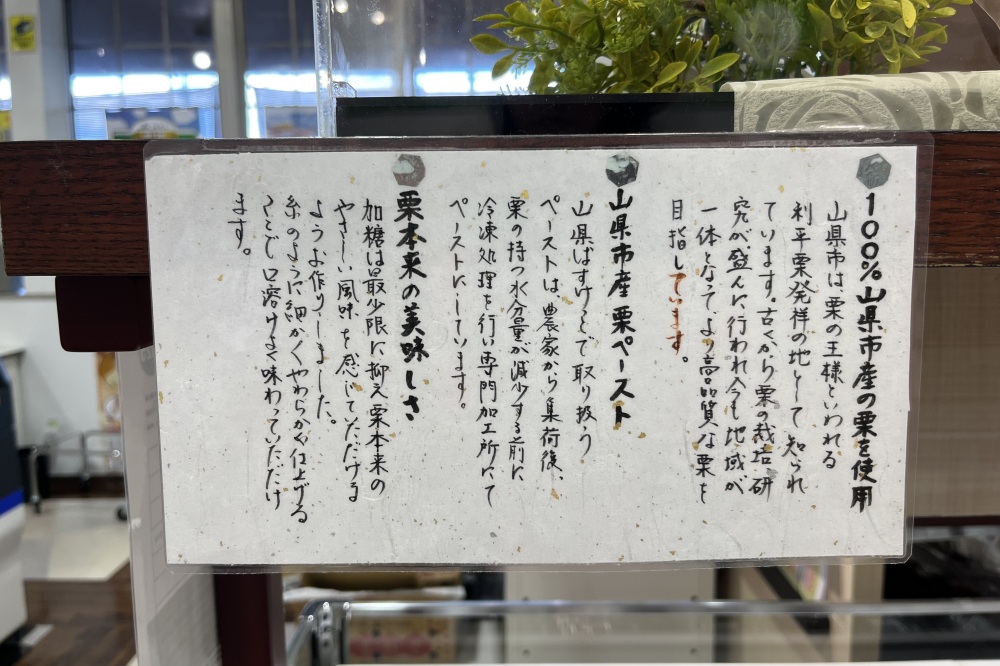 100%山県市産の栗を使用
山県市は、栗の王様といわれる
利平栗発祥の地として知られ
ています。古くから栗の栽培研
究が盛んに行われ今も地域が
一体となって、より高品質な栗を
目指しています。
山県市産栗ペースト
山県ばすけっとで取り扱う
ペーストは、農家から集荷後、
栗の持つ水分量が減少する前に
冷凍処理を行い専門加工所にて
ペーストにしています。
栗本来の美味しさ
加糖は最少限に抑え栗本来の
やさしい風味を感じていただける
ようお作りしました。
糸のように細かくやわらかく仕上げる
ことで口溶けよく味わっていただけ
ます。